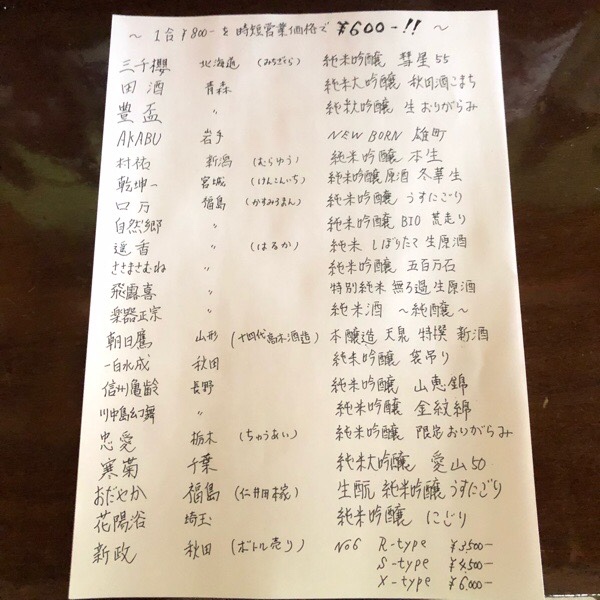 ～ 1合¥800-を時短営業価格で ¥600-!! ～
三千櫻 北海道 (みちざくら) 純米吟醸 彗星55
田酒 青森 純米大吟醸 秋田酒こまち
豊盃 〃 純米吟醸 生おりがらみ
AKABU 岩手 NEW BORN 雄町
村祐 新潟 (むらゆう) 純米吟醸 本生
乾坤一 宮城 (けんこんいち) 純米吟醸原酒 冬華生
口万 福島 (かすみろまん) 純米吟醸 うすにごり
自然郷 〃 純米吟醸 BIO 荒走り
遥香 〃 (はるか) 純米 しぼりたて生原酒
ささまさむね 〃 純米吟醸 五百万石
飛露喜 〃 特別純米 無ろ過生原酒
楽器正宗 〃 純米酒 ～純醸～
朝日鷹 山形 (十四代高木酒造) 本醸造 天泉 特撰 新酒
一白水成 秋田 純米吟醸 袋吊り
信州亀齢 長野 純米吟醸 山恵錦
川中島幻舞 〃 純米吟醸 金紋錦
忠愛 栃木 (ちゅうあい) 純米吟醸 限定おりがらみ
寒菊 千葉 純米大吟醸 愛山50
おだやか 福島 (仁井田本家) 生酛 純米吟醸うすにごり
花陽浴 埼玉 純米吟醸 にごり
新政 秋田 (ボトル売り) No6 R-type ¥3,500-
S-type ¥4,500-
X-type ¥6,000-